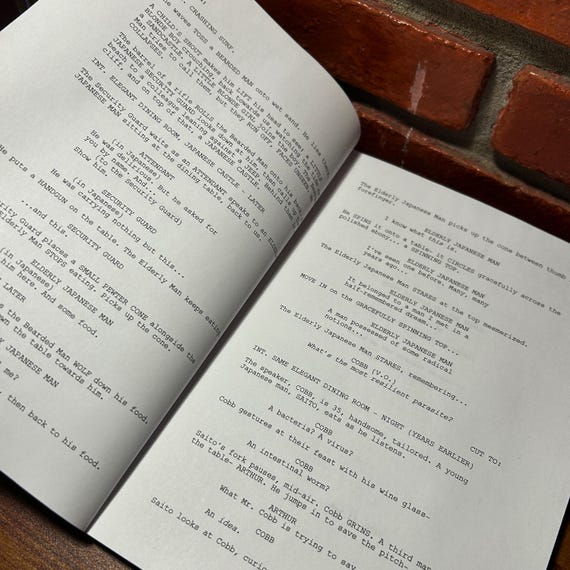 CRASHING SURF.
The waves TOSS a BEARDED MAN onto wet sand. He lies there.
A CHILD'S SHOUT makes him LIFT his head to see: a LITTLE
BLONDE BOY crouching, back towards us, watching the tide eat
a SANDCASTLE. A LITTLE BLONDE GIRL joins the boy. The Bearded
Man tries to call them, but they RUN OFF,
COLLAPSES.
The barrel of a rifle ROLLS the Bearded Man onto his back. A
JAPANESE SECURITY GUARD looks down at him, then calls up the
beach to a colleague leaning against a JEEP. Behind them is a
cliff, and on top of that, a JAPANESE CASTLE.
INT. ELEGANT DINING ROOM, JAPANESE CASTLE - LATER
The Security Guard waits as an ATTENDANT speaks to an ELDERLY
JAPANESE MAN sitting at the dining table, back to us.
ATTENDANT
(in Japanese)
He was delirious. But he asked for
you by name. And...
(to the Security Guard)
Show him.
SECURITY GUARD
(in Japanese)
He was carrying nothing but this...
He puts a HANDGUN on the table. The Elderly Man keeps eating.
SECURITY GUARD
...and this.
Security Guard places a SMALL PEWTER CONE alongside the
Elderly Man STOPS eating. Picks up the cone.
ELDERLY JAPANESE MAN
(in Japanese)
him here. And some food.
LATER
the Bearded Man WOLF down his food.
down the table towards him.
JAPANESE MAN
me?
then back to his food.
The Elderly Japanese Man picks up the cone between thumb
forefinger.
ELDERLY JAPANESE MAN
I know what this is.
He SPINS it onto a table. It CIRCLES gracefully across the
polished ebony... a SPINNING TOP.
ELDERLY JAPANESE MAN
I've seen one before. Many, many
years ago...
The Elderly Japanese Man STARES at the top mesmerized.
ELDERLY JAPANESE MAN
It belonged to a man I met in a
half-remembered dream...
MOVE IN on the GRACEFULLY SPINNING TOP...
ELDERLY JAPANESE MAN
A man possessed of some radical
notions...
The Elderly Japanese Man STARES, remembering...
COBB (V.O.)
What's the most resilient parasite?
CUT TO:
INT. SAME ELEGANT DINING ROOM - NIGHT (YEARS EARLIER)
The speaker, COBB, is 35, handsome, tailored. A young
Japanese man, SAITO, eats as he listens.
COBB
A bacteria? A virus?
Cobb gestures at their feast with his wine glass-
COBB
An intestinal worm?
Saito's fork pauses, mid-air. Cobb GRINS. A third man
the table- ARTHUR. He jumps in to save the pitch-
ARTHUR
What Mr. Cobb is trying to say
COBB
An idea.
Saito looks at Cobb,